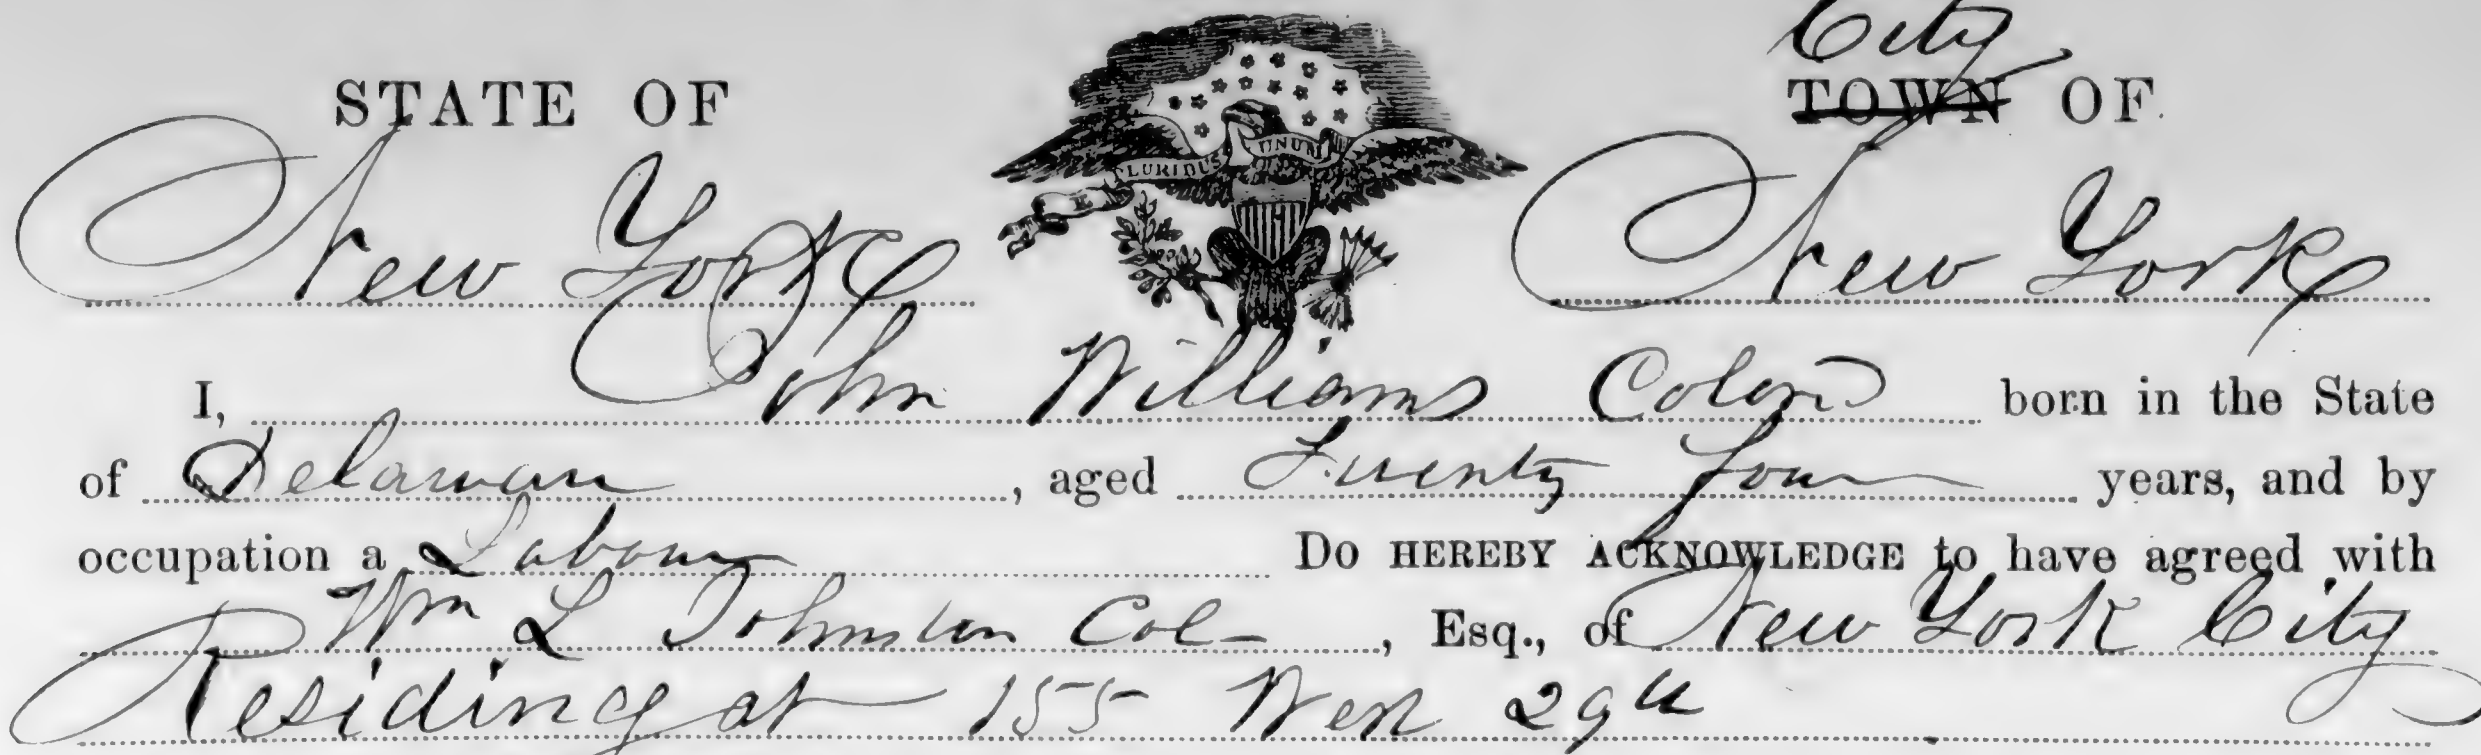 City
STATE OF TOWN OF
E PLURIBUS UNUM
New York New York
I, John Williams Colord born in the State
of Delaware, aged Twenty Four years, and by
occupation a Labourer DO HEREBY ACKNOWLEDGE to have agreed with
Wm L Johnston Col-, Esq., of New York City
Residing at 155 West 29th